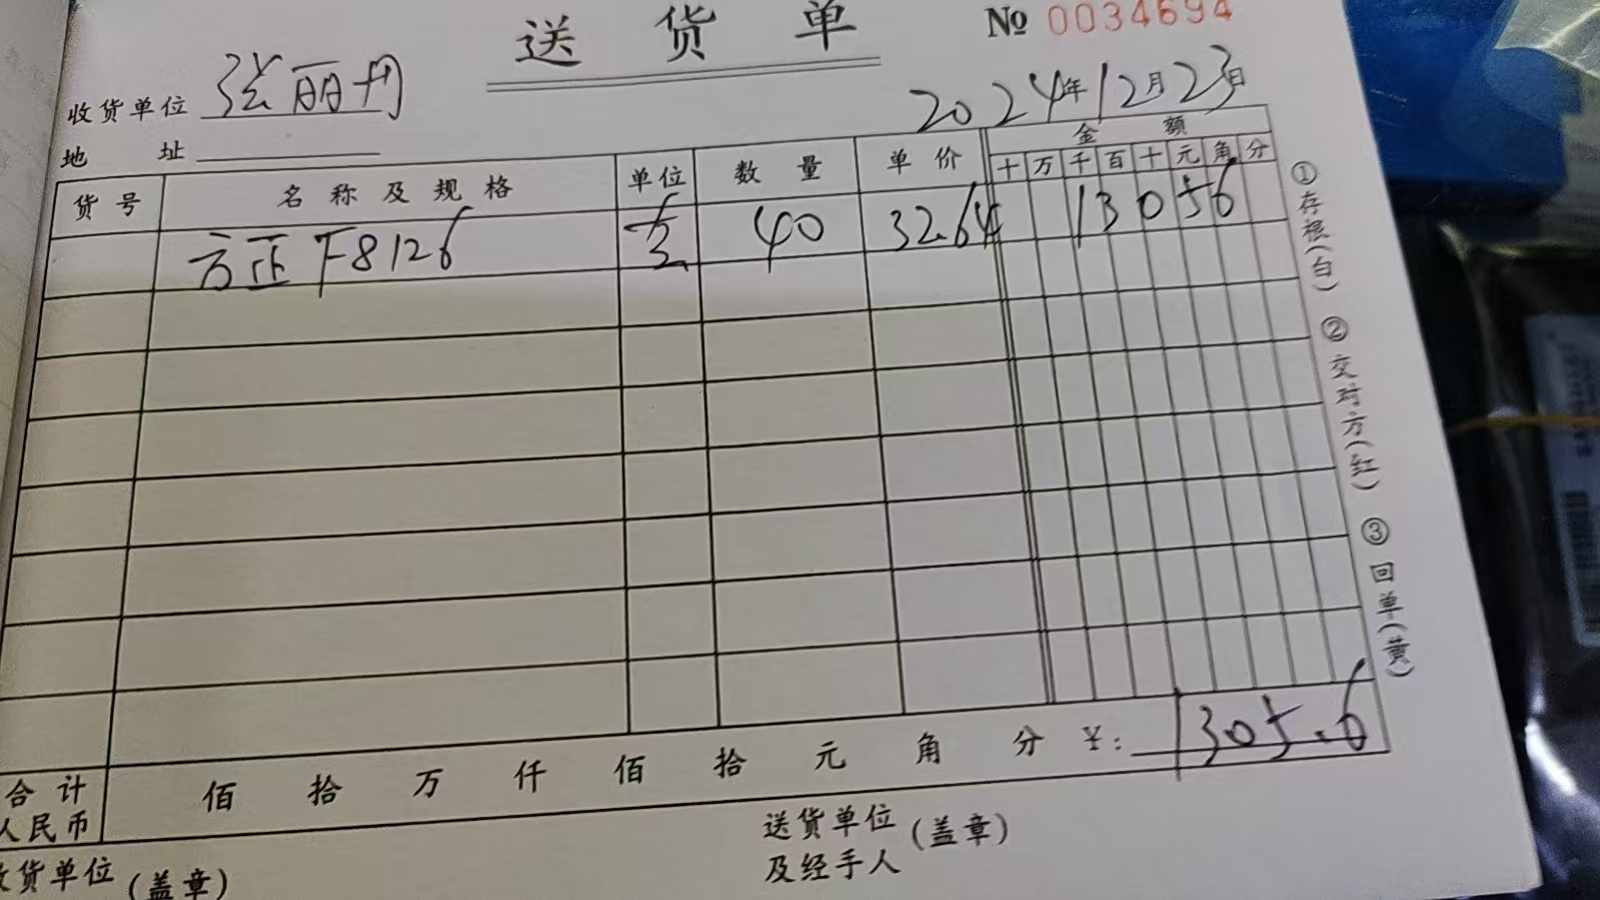 送货单 № 0034694
收货单位 张丽丹
2024年12月23日
地址
货号 名称及规格 单位 数量 单价 金额
十 万 千 百 十 元 角 分
方正F8126 套 40 32.64 13056
①存根(白) ②交对方(红) ③回单(黄)
合计人民币 佰 拾 万 仟 佰 拾 元 角 分 ¥: 1305.6
收货单位(盖章) 送货单位及经手人(盖章)